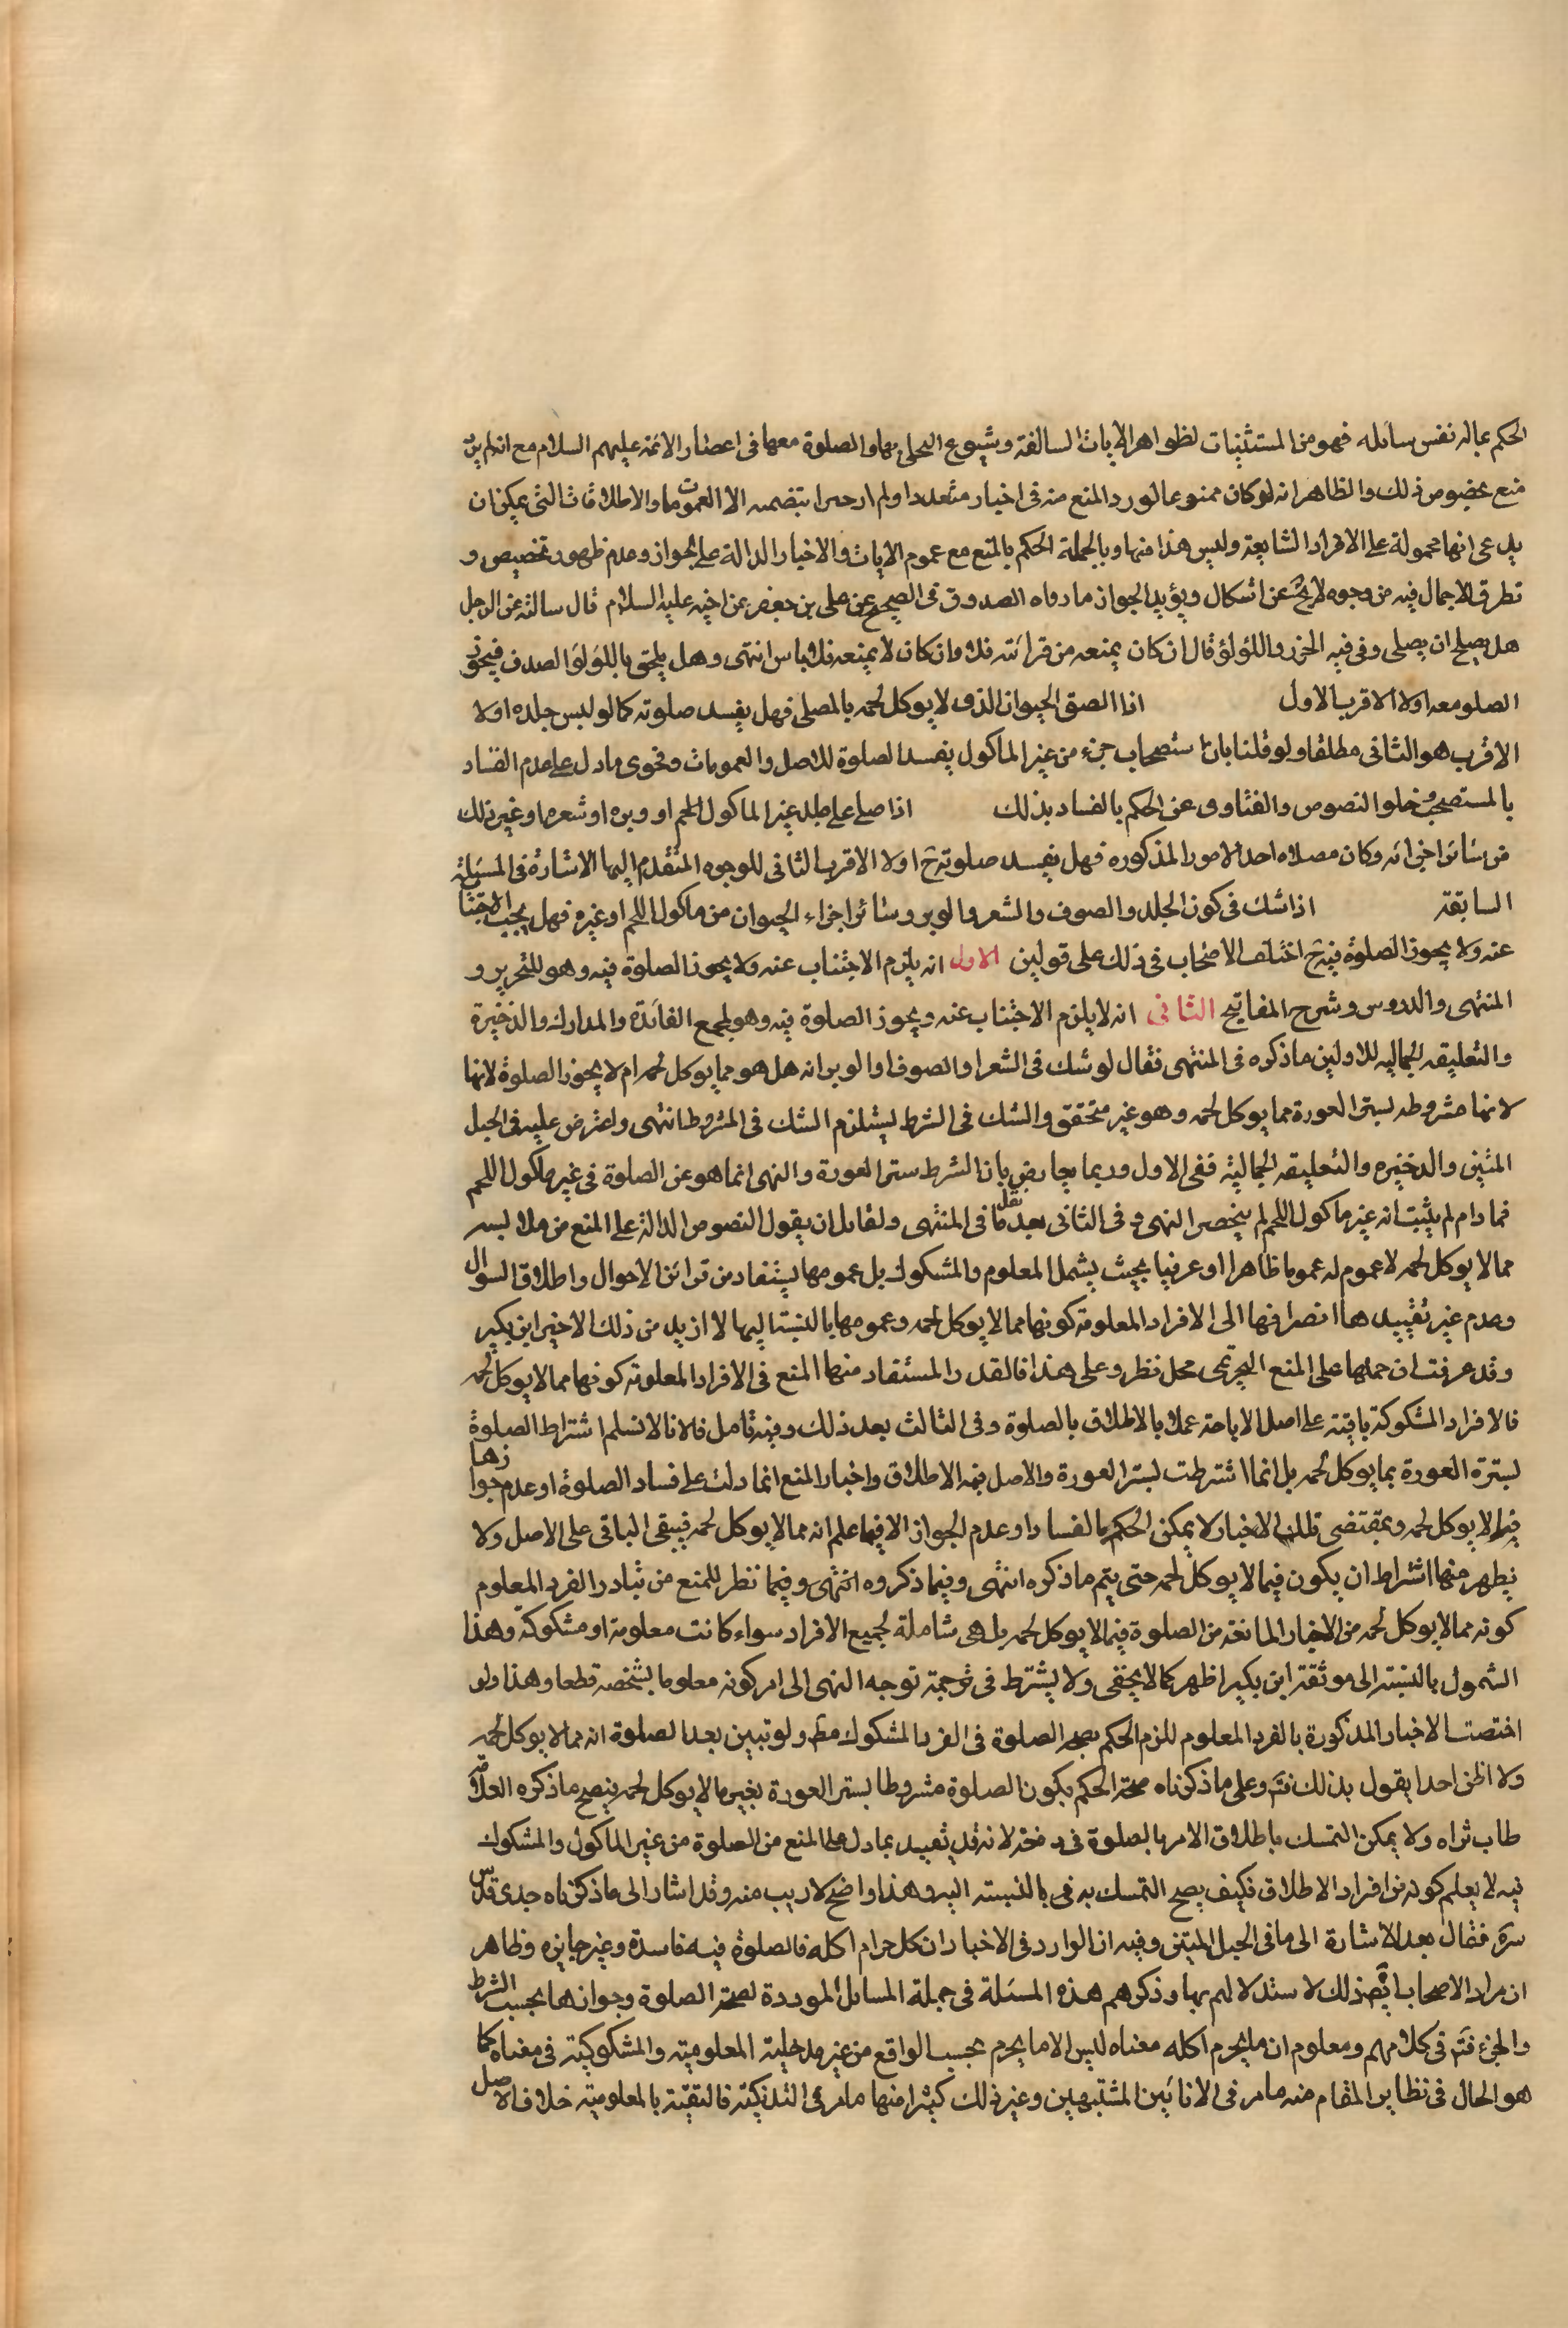 الحكم بماله نفس سائله فهو من المستثنيات لظواهر الايات السالفة وشيوع التحلى بها والصلوة معها فى اعصار الائمة عليهم السلام مع انه لم يرد
منع بخصوص ذلك والظاهر انه لو كان ممنوعا لورد المنع منه فى اخبار متعددة ولم ار خبرا يتضمنه الا العمومات والاطلاقات التى يمكن ان
يدعى انها محمولة على الافراد الشايعة وليس هذا منها وبالجملة الحكم بالمنع مع عموم الايات والاخبار الدالة على الجواز وعدم ظهور تخصيص و
تطرق الاجمال فيه من وجوه لا يخ عن اشكال ويؤيد الجواز ما رواه الصدوق فى الصحيح عن على بن جعفر عن اخيه عليه السلام قال سالته عن الرجل
هل يصلح ان يصلى وفى فيه الخرز واللؤلؤ قال ان كان يمنعه من قرائته فلا وان كان لا يمنعه فلا باس انتهى وهل يلحق باللؤلؤ الصدف فيجوز
الصلو معه اولا الاقرب الاول اذا الصق الحيوان الذى لا يوكل لحمه بالمصلى فهل يفسد صلوته كما لو لبس جلده اولا
الاقرب هو الثانى مطلقا ولو قلنا بان استصحاب جزء من غير الماكول يفسد الصلوة للاصل والعمومات وفحوى ما دل على عدم الفساد
بالمستصحب وخلو النصوص والفتاوى عن الحكم بالفساد بذلك اذا صلى على جلد غير الماكول اللحم او وبره او شعره او غير ذلك
من سائر اجزائه وكان مصلاه احد الامور المذكوره فهل يفسد صلوته ح اولا الاقرب الثانى للوجوه المتقدم اليها الاشارة فى المسئلة
السابقة اذا شك فى كون الجلد والصوف والشعر والوبر وسائر اجزاء الحيوان من ماكول اللحم او غيره فهل يجب الاجتناب
عنه ولا يجوز الصلوة فيه ح اختلف الاصحاب فى ذلك على قولين الاول انه يلزم الاجتناب عنه ولا يجوز الصلوة فيه وهو للتحرير و
المنتهى والدروس وشرح المفاتيح الثانى انه لا يلزم الاجتناب عنه ويجوز الصلوة فيه وهو لمجمع الفائدة والمدارك والذخيرة
والتعليقه الجماليه للاولين ما ذكره فى المنتهى فقال لو شك فى الشعر او الصوف او الوبر انه هل هو مما يوكل لحمه ام لا يجوز الصلوة لانها
لانها مشروطه بستر العورة مما يوكل لحمه وهو غير متحقق والشك فى الشرط يستلزم الشك فى المشروط انتهى واعترض عليه فى الحبل
المتين والذخيره والتعليقه الجمالية ففى الاول وربما يعارض بان الشرط ستر العورة والنهى انما هو عن الصلوة فى غير ماكول اللحم
فما دام لم يثبت انه غير ماكول اللحم لم ينحصر النهى و فى الثانى بعد نقل ما فى المنتهى ولقايل ان يقول النصوص الدالة على المنع من ملابسه
مما لا يوكل لحمه لا عموم له عموما ظاهرا او عرفيا بحيث يشمل المعلوم والمشكوك بل عمومها يستفاد من قرائن الاحوال واطلاق السوال
وعدم غير تقييد هاا نصرافها الى الافراد المعلومة كونها مما لا يوكل لحمه وعمومها بالنسبة اليها لا ازيد من ذلك الا خبر ابن بكير
وقد عرفت ان حملها على المنع التحريمى محل نظر وعلى هذا فالقدر المستفاد منها المنع فى الافراد المعلومة كونها مما لا يوكل لحمه
فالافراد المشكوكة باقية على اصل الاباحة عملا بالاطلاق بالصلوة وفى الثالث بعد ذلك وفيه تامل فلانا لا نسلم اشتراط الصلوة
بسترة العورة بما يوكل لحمه بل انما اشترطت بستر العورة والاصل فيه الاطلاق واخبار المنع انما دلت على فساد الصلوة او عدم جوازها
فيما لا يوكل لحمه وبمقتضى تلك الاخبار لا يمكن الحكم بالفساد او عدم الجواز الا فيما علم انه مما لا يوكل لحمه فيبقى الباقى على الاصل ولا
يظهر منها اشتراط ان يكون فيما لا يوكل لحمه حتى يتم ما ذكره انتهى وفيما ذكروه انتهى وفيما نظر للمنع من تبادر الفرد المعلوم
كونه مما لا يوكل لحمه من الاخبار المانعة من الصلوة فيما لا يوكل لحمه بل هى شاملة لجميع الافراد سواء كانت معلومة او مشكوكة وهذا
الشمول بالنسبة الى موثقة ابن بكير اظهر كما لا يخفى ولا يشترط فى توجه توجه النهى الى امر كونه معلوما بشخصه قطعا وهذا ولو
اختصت الاخبار المذكورة بالفرد المعلوم للزم الحكم بصحة الصلوة فى الفرد المشكوك مط ولو تبين بعد الصلوة انه مما لا يوكل لحمه
ولا اظن احدا يقول بذلك فتم وعلى ما ذكرناه صحة الحكم بكون الصلوة مشروطا بستر العورة بغير ما لا يوكل لحمه فيصح ما ذكره العلامة
طاب ثراه ولا يمكن التمسك باطلاق الامر بالصلوة فى دفعه لانه قد تقييد بما دل على المنع من الصلوة من غير الماكول والمشكوك
فيه لا يعلم كونه من افراد الاطلاق فكيف يصح التمسك به فى بالنسبته اليه وهذا واضح لا ريب منه وقد اشار الى ما ذكرناه جدى قدس
سره فقال بعد الاشارة الى ما فى الحبل المتين وفيه ان الوارد فى الاخبار ان كل حرام اكله فالصلوة فيه فاسدة وغير جايزه وظاهر
ان مراد الاصحاب ايضا ذلك لاستدلالهم بها وذكرهم هذه المسئلة فى جملة المسائل الموردة لصحة الصلوة وجوازها بحسب الشرط
والجزء فتم فى كلامهم ومعلوم ان ما يحرم اكله معناه ليس الا ما يحرم بحسب الواقع من غير مدخلية المعلومية والمشكوكية فى معناه كما
هو الحال فى نظاير المقام منه ما مر فى الانائين المشتبهين وغير ذلك كثيرا منها ما مر فى التذكية فالتقية بالمعلومية خلاف الاصل